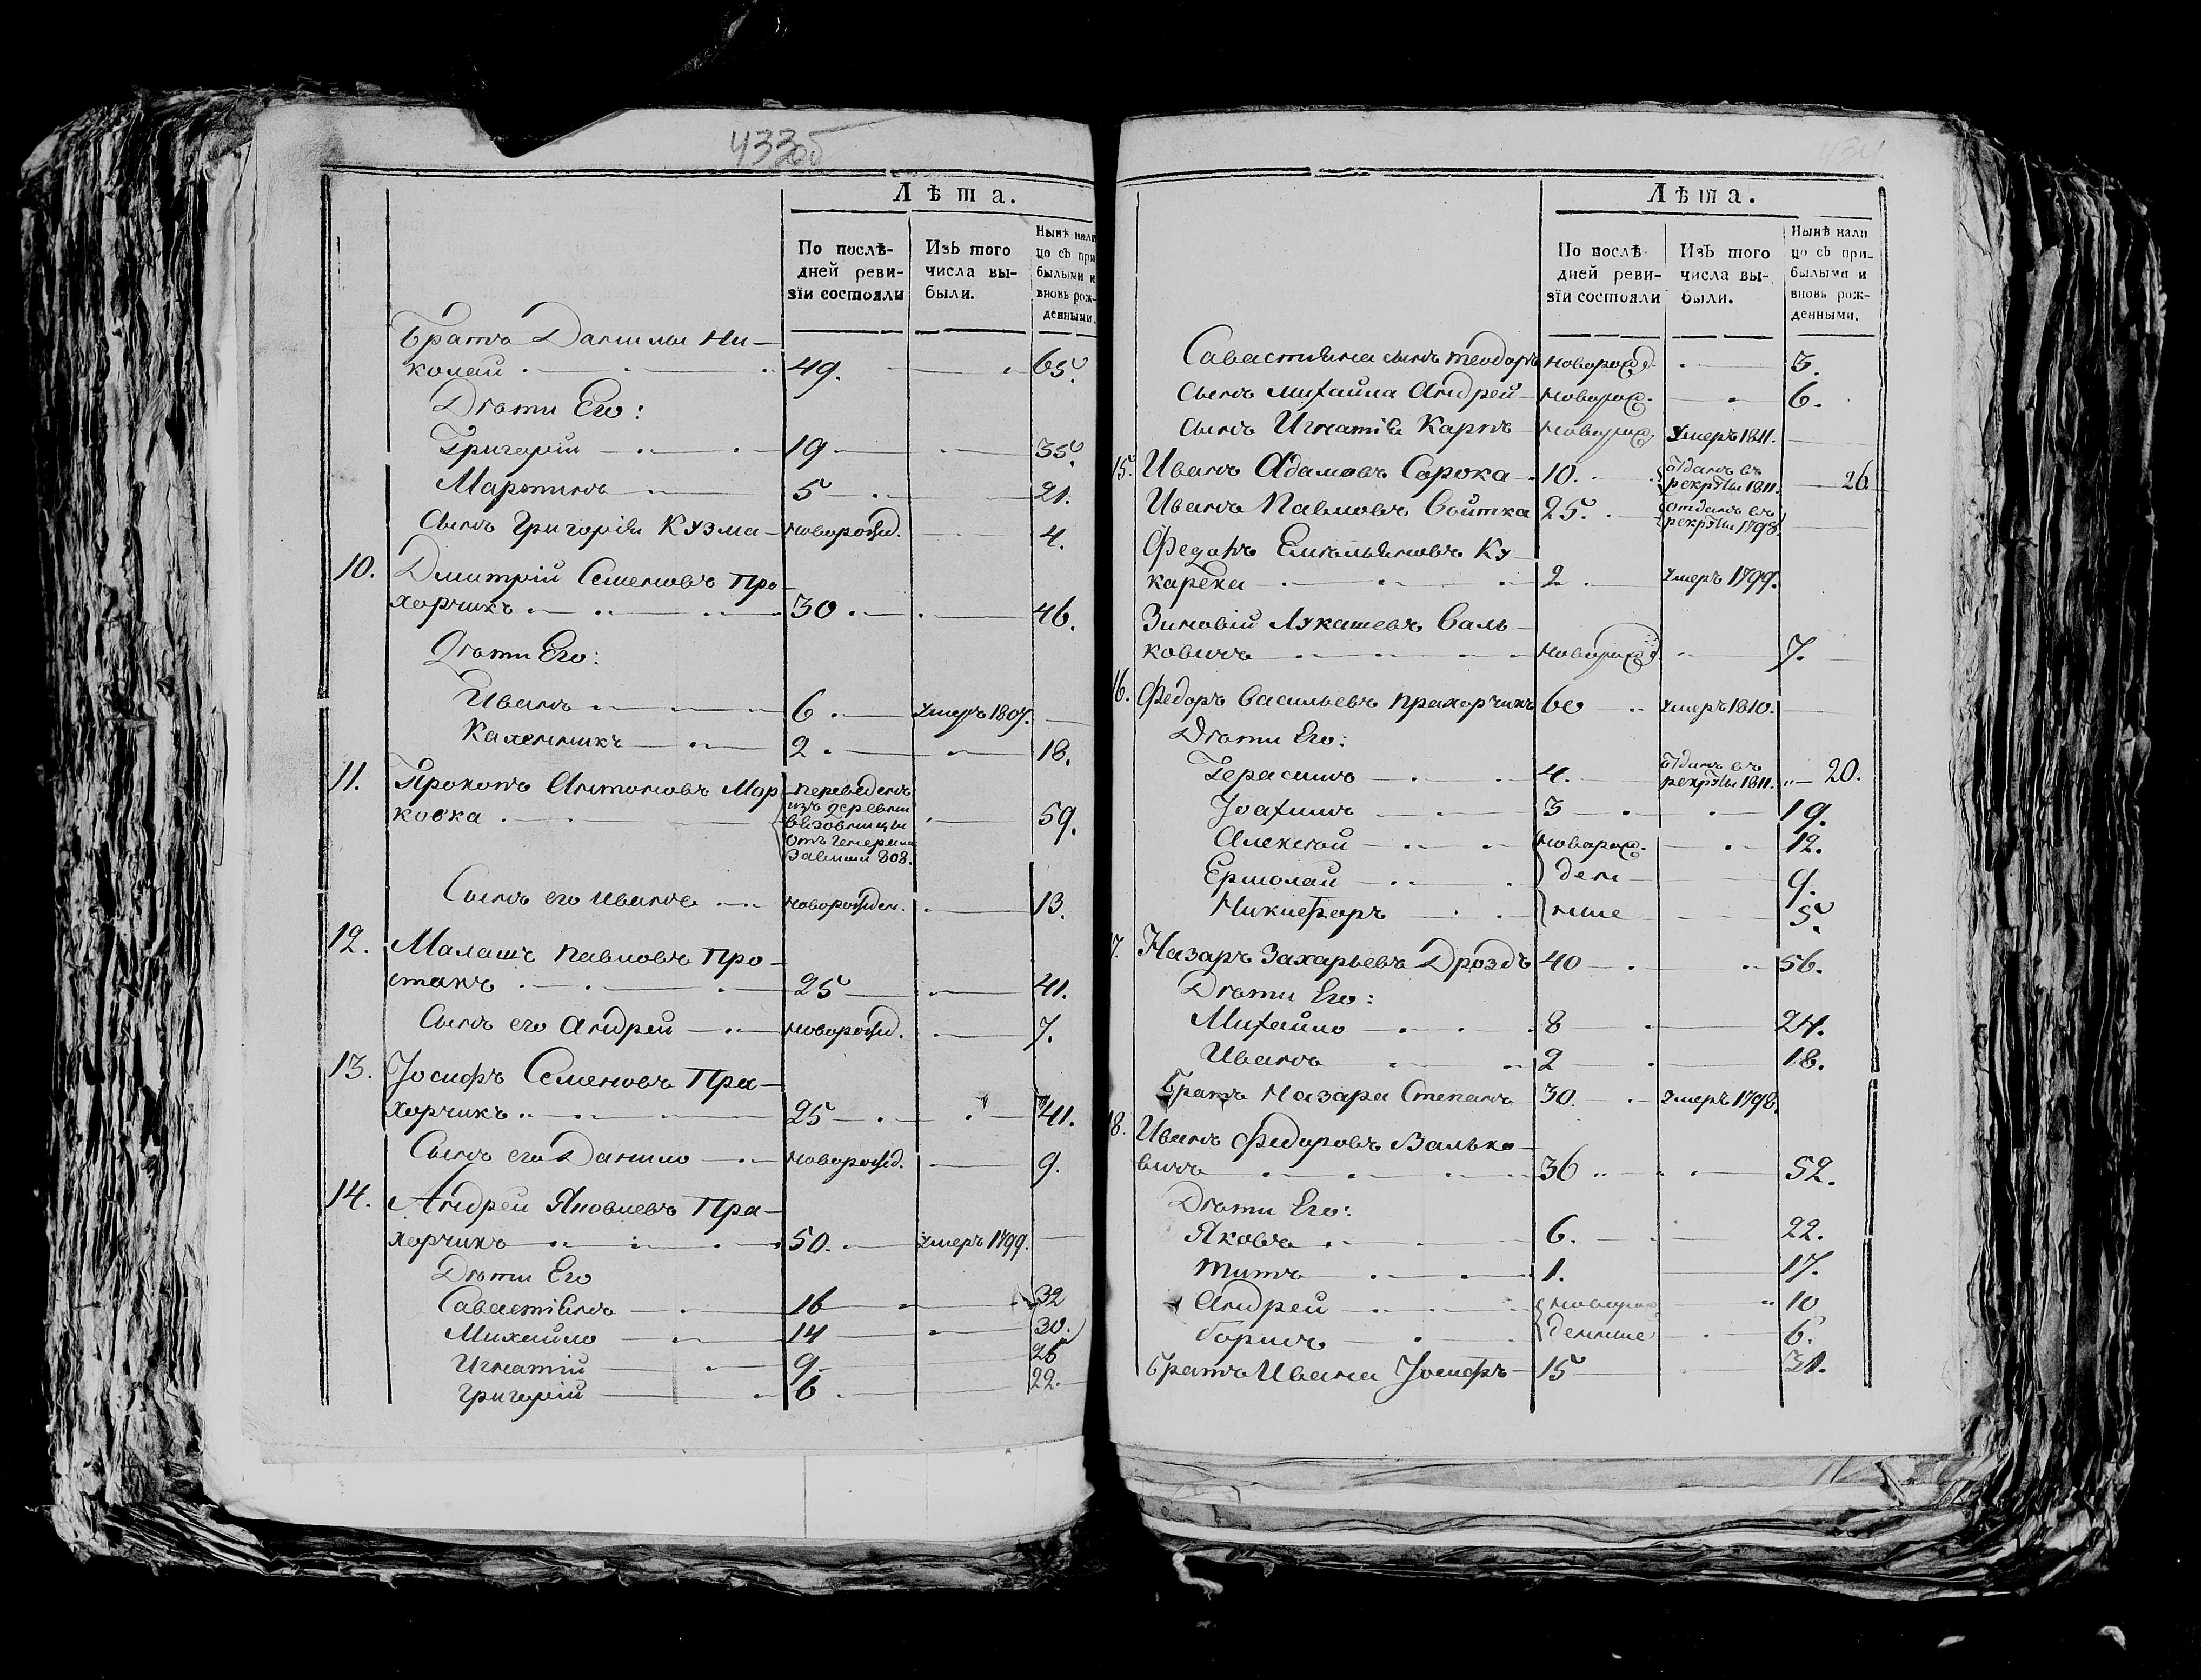 433об
Лѣта.
По послѣ-
дней реви-
зїи состояли
Изъ того
числа вы-
были.
Нынѣ нали
цо съ при
былыми и
вновь рож-
денными.
Братъ Данилы Ни-
колай 49. 65.
Дѣти Его:
Григорій 19 35.
Мартинъ 5 21.
Сынъ Григорія Кузма новорожд. 4.
10. Дмитрій Семеновъ Про
хорчикъ 30 46.
Дѣти Его:
Иванъ 6 умеръ 1807.
Каленникъ 2 18.
11. Прокопъ Антоновъ Мар
ковка переведенъ
изъ деревни
59.
отъ Генерала
808.
Сынъ его Иванъ новорожден. 13.
12. Малашъ Павловъ Про-
стакъ 25 41.
Сынъ его Андрей новорожд. 7.
13. Іосифъ Семеновъ Пра-
хорчикъ 25 41.
Сынъ его Данило новорожд. 9.
14. Андрей Яковлевъ Пра-
хорчикъ 50. умеръ 1799.
Дѣти Его
Савастіянъ 16 32
Михайло 14 30.
Игнатій 9 25
Григорій 6 22.
434
Лѣта.
По послѣ-
дней реви-
зїи состояли
Изъ того
числа вы-
были.
Нынѣ нали
цо съ при-
былыми и
вновь рож-
денными.
Савастіяна сынъ Теодоръ новорожд. 3.
Сынъ Михайла Андрей новорож. 6.
Сынъ Игнатія Карпъ новорож. умеръ 1811.
15. Иванъ Адамовъ Сорока 10. отданъ въ
рекруты 1811. 26
Иванъ Павловъ Войтка 25. отданъ въ
рекруты 1798.
Федоръ Емельяновъ Ку-
карека 2 умеръ 1799.
Зиновій Лукашевъ Валь-
ковичъ новорожд. 7.
16. Федоръ Васильевъ Прахорчикъ 60 умеръ 1810.
Дѣти Его:
Герасимъ 4. отданъ въ
рекруты 1811. 20.
Іоахимъ 3 19.
Алексѣй новорож. 12.
Ермолай ден 9.
Никифоръ ные 5.
7. Назаръ Захарьевъ Дроздъ 40 56.
Дѣти Его:
Михайло 8 24.
Иванъ 2 18.
Братъ Назара Степанъ 30. умеръ 1798.
8. Иванъ Федоровъ Валько-
вичъ 36 52.
Дѣти Его:
Яковъ 6. 22.
Титъ 1. 17.
Андрей новорож 10
Борисъ денные 6.
Братъ Ивана Іосифъ 15 31.